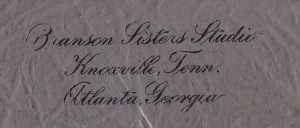 Branson Sisters Studio
Knoxville, Tenn.
Atlanta, Georgia